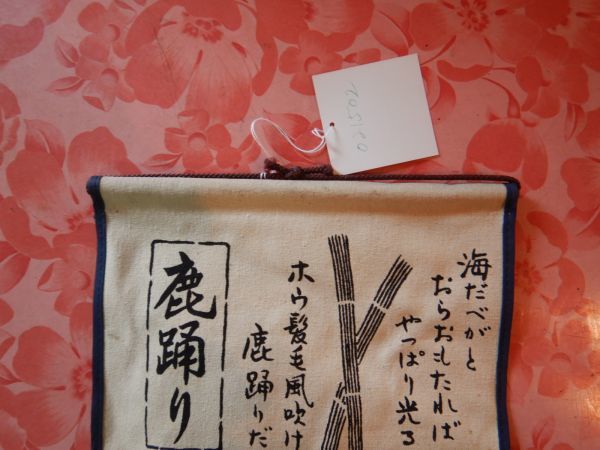 021502
海だべがと
おらおもたれば
やっぱり光る
ホウ髪毛風吹け
鹿踊りだ
鹿踊り